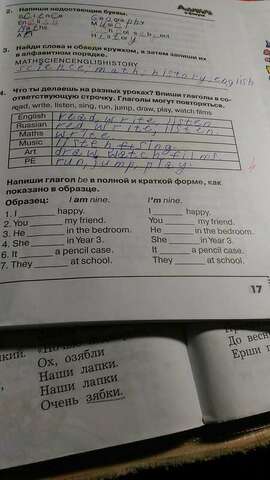 2. Напиши недостающие буквы.
Science Geography
3. Найди слова и обведи кружком, а затем запиши их
в алфавитном порядке.
MATHSCIENCENGLISHISTORY
science, math, history, english
4. Что ты делаешь на разных уроках? Впиши глаголы в со-
ответствующую строчку. Глаголы могут повторяться.
read, write, listen, sing, run, jump, draw, play, watch films
English read, write, listen
Russian red, write, listen.
Maths write
Music listen, sing
Art draw, watch, films
PE run, jump, play
Напиши глагол be в полной и краткой форме, как
показано в образце.
Образец: I am nine. I'm nine.
1. I ______ happy. I ______ happy.
2. You ______ my friend. You ______ my friend.
3. He ______ in the bedroom. He ______ in the bedroom.
4. She ______ in Year 3. She ______ in Year 3.
6. It ______ a pencil case. It ______ a pencil case.
7. They ______ at school. They ______ at school.
17
Ох, озябли
Наши лапки
Наши лапки
Очень зябки.
До весн
Ерши г